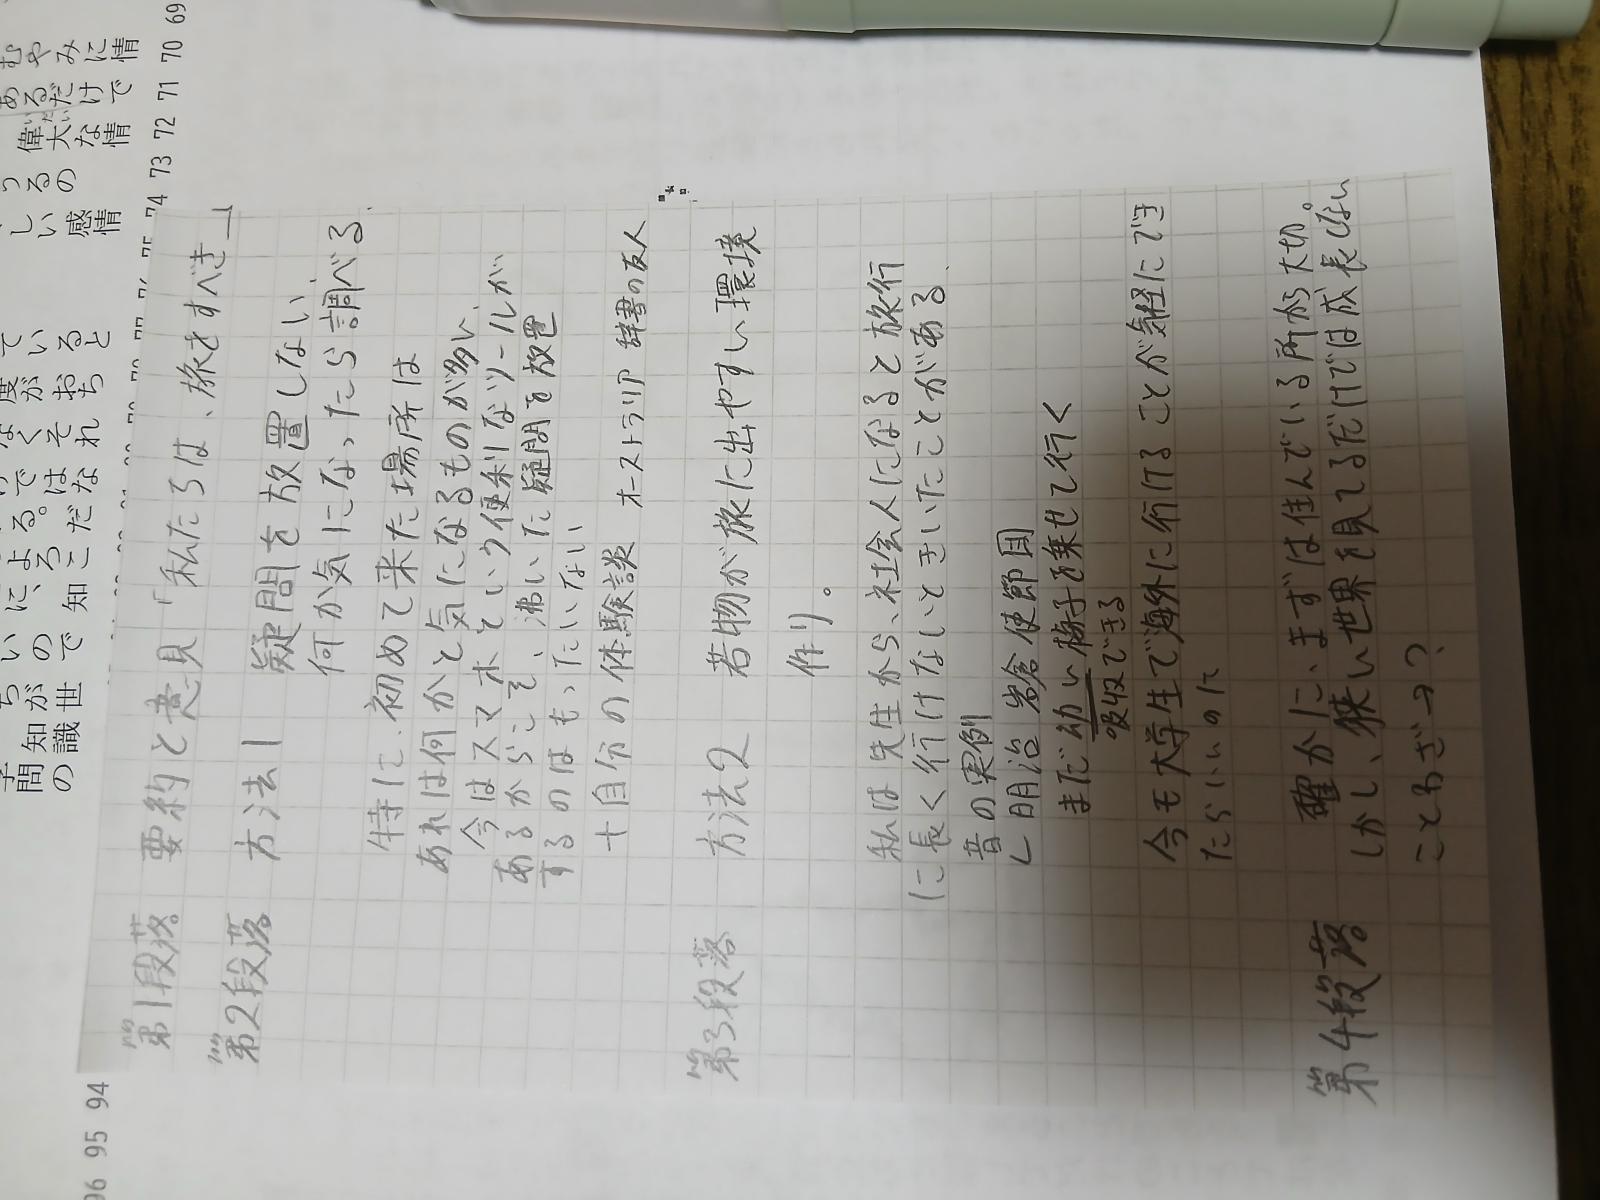 第1段落 要約と意見「私たちは、旅をすべき」
第2段落 方法1 疑問を放置しない、
何か気になったら調べる。
特に、初めて来た場所は
あれは何かと気になるものが多い、
今はスマホという便利なツールが
あるからこそ、沸いた疑問を放置
するのはもったいない
+自分の体験談 オーストラリア 辞書の友人
第3段落 方法2 若物が旅に出やすい環境
作り。
私は先生から、社会人になると旅行
に長く行けないときいたことがある。
昔の実例
明治 岩倉使節団
まだ幼い梅子を乗せて行く
吸収できる
今も大学生で海外に行けることが気軽にでき
たらいいのに
第4段落 確かに、まずは住んでいる所から大切。
しかし、狭い世界を見てるだけでは成長しない
ことわざ→?
69
70
71
72
73
74
94
95
96
むやみに情
あるだけで
偉大な情
うるの
しい感情
ていると
度がおち
なくそれ